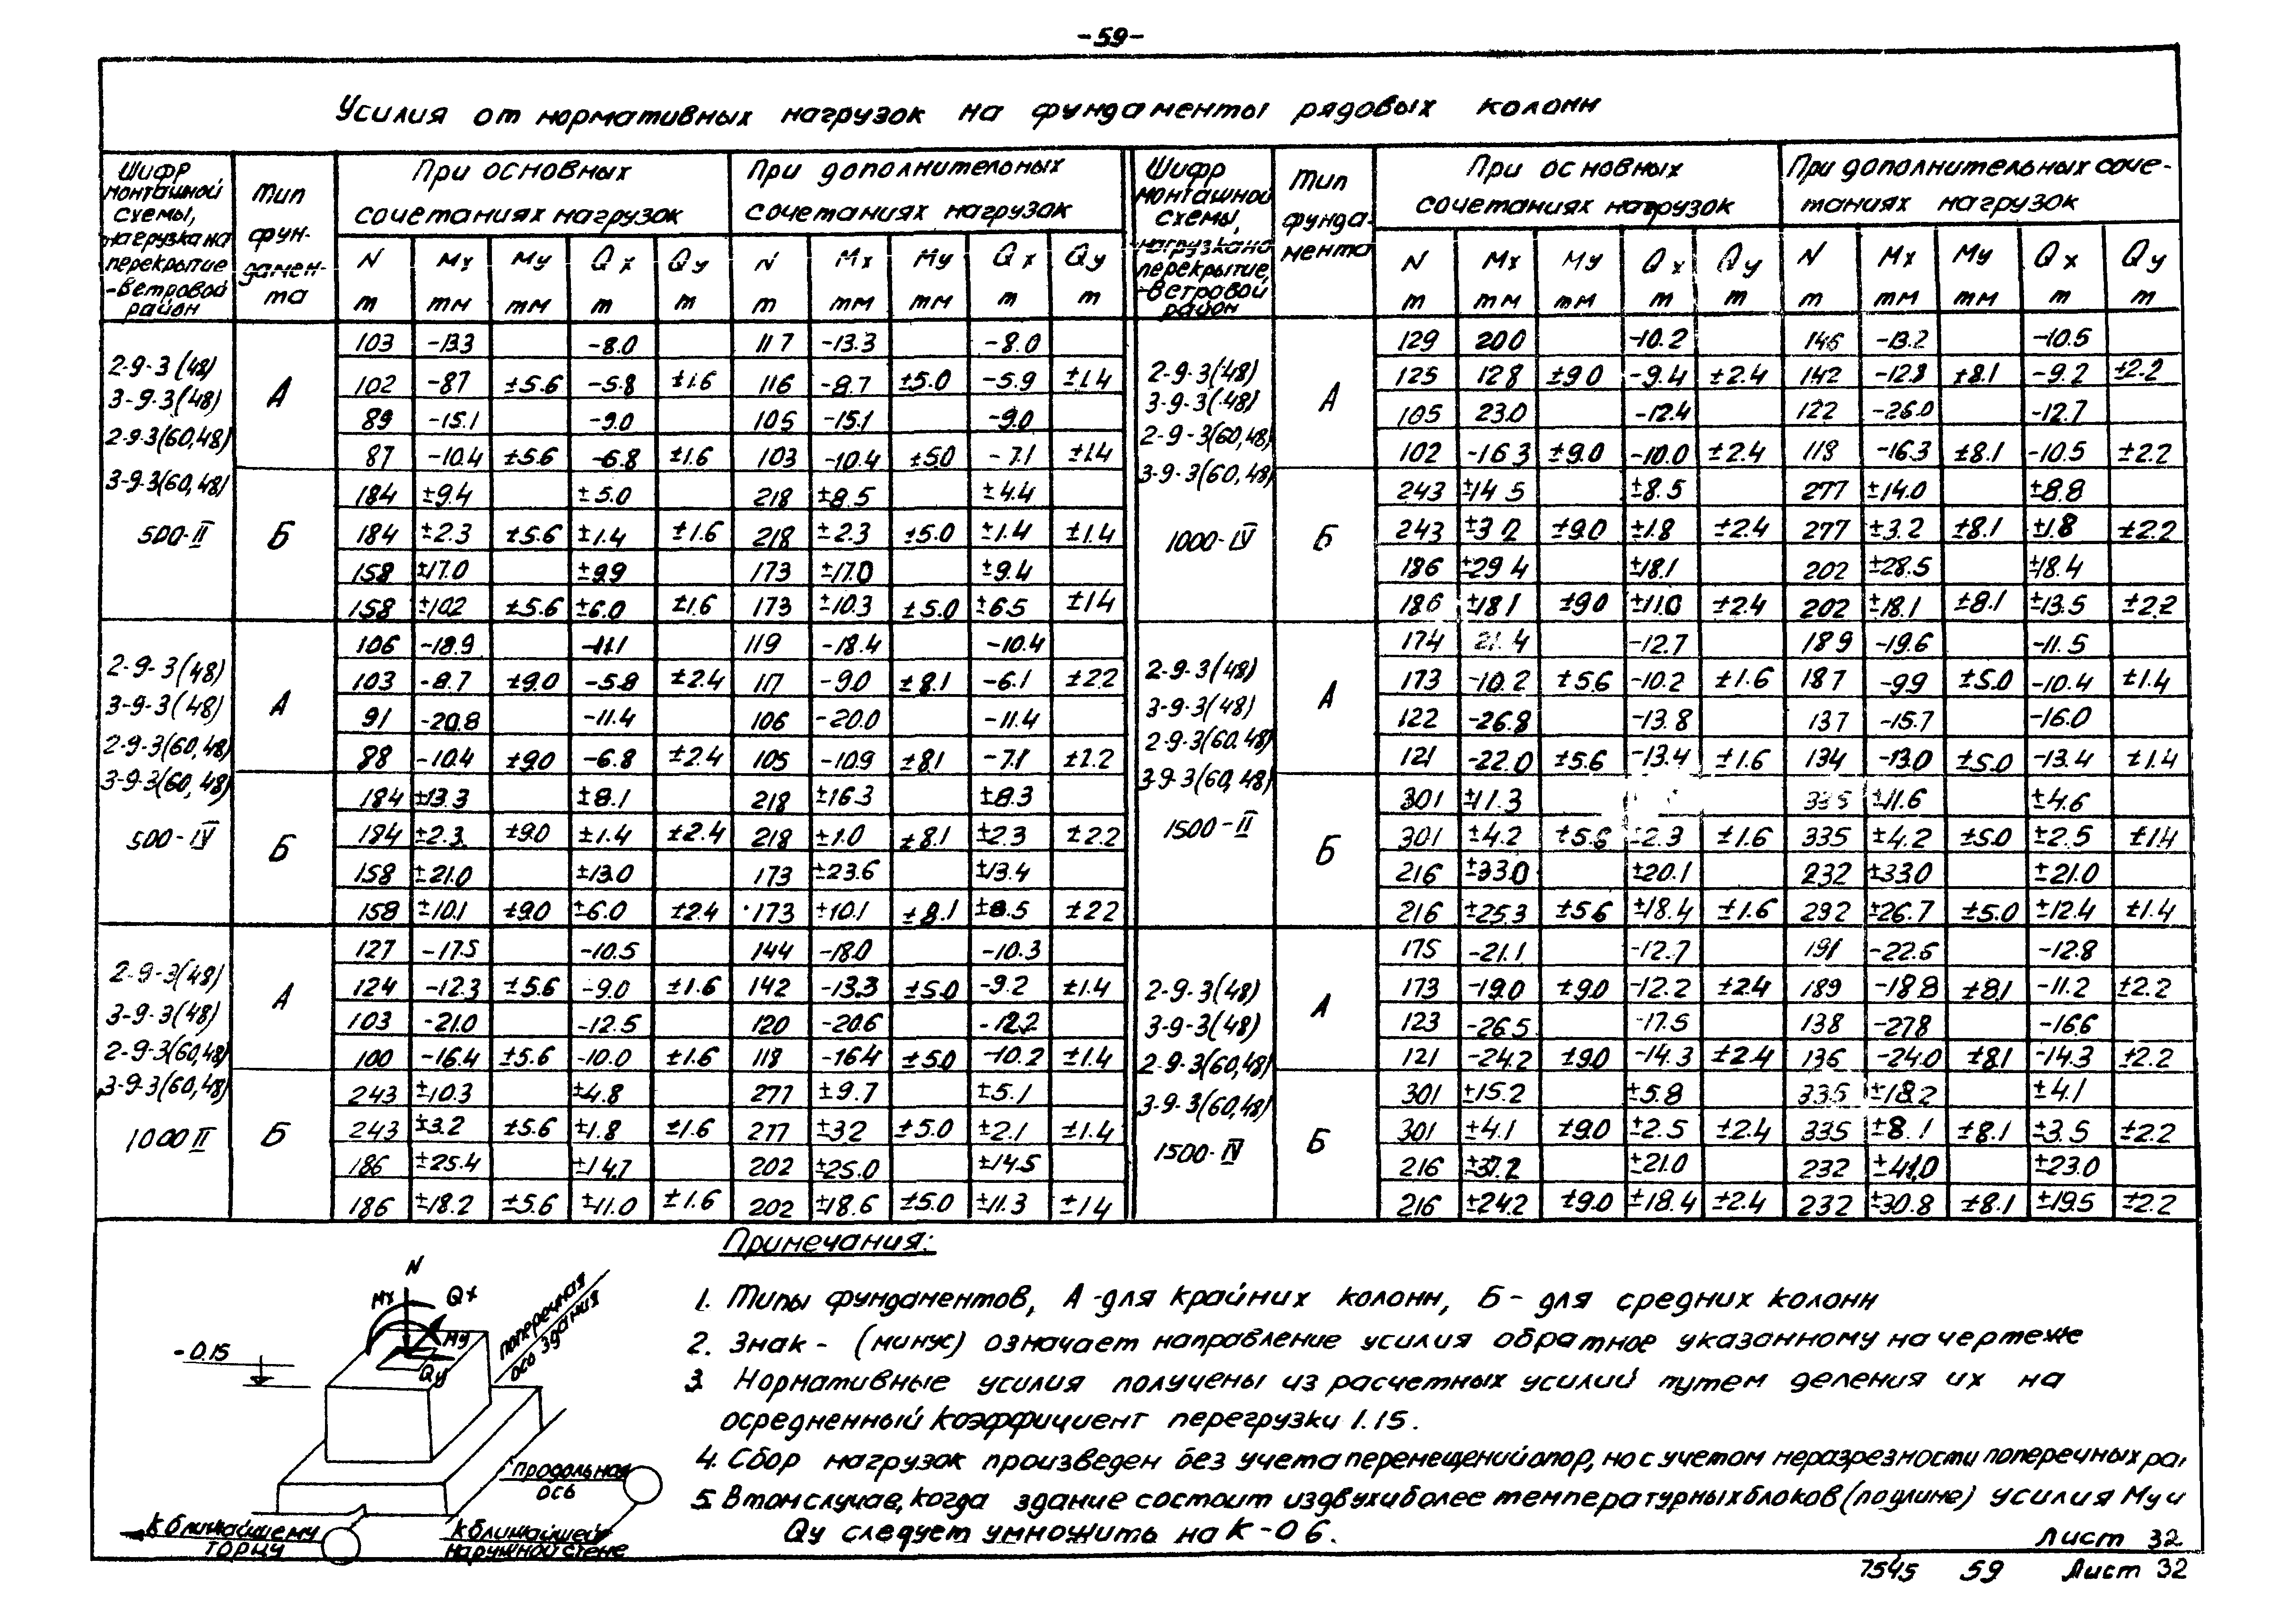 -59-
Усилия от нормативных нагрузок на фундаменты рядовых колонн
Шифр монтажной схемы, нагрузка на перекрытие -ветровой район | Тип фундамента | При основных сочетаниях нагрузок | При дополнительных сочетаниях нагрузок
N т | Mx тм | My тм | Qx т | Qy т | N т | Mx тм | My тм | Qx т | Qy т
2-9-3(48)
3-9-3(48)
2-9-3(60,48)
3-9-3(60,48)
500-II
А
103 | -13.3 | | -8.0 | | 117 | -13.3 | | -8.0 |
102 | -87 | ±5.6 | -5.8 | ±1.6 | 116 | -8.7 | ±5.0 | -5.9 | ±1.4
89 | -15.1 | | -9.0 | | 105 | -15.1 | | -9.0 |
87 | -10.4 | ±5.6 | -6.8 | ±1.6 | 103 | -10.4 | ±5.0 | -7.1 | ±1.4
Б
184 | ±9.4 | | ±5.0 | | 218 | ±8.5 | | ±4.4 |
184 | ±2.3 | ±5.6 | ±1.4 | ±1.6 | 218 | ±2.3 | ±5.0 | ±1.4 | ±1.4
158 | ±17.0 | | ±9.9 | | 173 | ±17.0 | | ±9.4 |
158 | ±102 | ±5.6 | ±6.0 | ±1.6 | 173 | ±10.3 | ±5.0 | ±6.5 | ±14
2-9-3(48)
3-9-3(48)
2-9-3(60,48)
3-9-3(60,48)
500-IV
А
106 | -18.9 | | -11.1 | | 119 | -18.4 | | -10.4 |
103 | -8.7 | ±9.0 | -5.8 | ±2.4 | 117 | -9.0 | ±8.1 | -6.1 | ±22
91 | -20.8 | | -11.4 | | 106 | -20.0 | | -11.4 |
88 | -10.4 | ±90 | -6.8 | ±2.4 | 105 | -10.9 | ±8.1 | -7.1 | ±2.2
Б
184 | ±13.3 | | ±8.1 | | 218 | ±16.3 | | ±8.3 |
184 | ±2.3 | ±90 | ±1.4 | ±2.4 | 218 | ±1.0 | ±8.1 | ±2.3 | ±2.2
158 | ±21.0 | | ±13.0 | | 173 | ±23.6 | | ±13.4 |
158 | ±10.1 | ±90 | ±6.0 | ±2.4 | 173 | ±10.1 | ±8.1 | ±8.5 | ±22
2-9-3(48)
3-9-3(48)
2-9-3(60,48)
3-9-3(60,48)
1000 II
А
127 | -17.5 | | -10.5 | | 144 | -18.0 | | -10.3 |
124 | -12.3 | ±5.6 | -9.0 | ±1.6 | 142 | -13.3 | ±5.0 | -9.2 | ±1.4
103 | -21.0 | | -12.5 | | 120 | -20.6 | | -12.2 |
100 | -16.4 | ±5.6 | -10.0 | ±1.6 | 118 | -164 | ±5.0 | -10.2 | ±1.4
Б
243 | ±10.3 | | ±4.8 | | 277 | ±9.7 | | ±5.1 |
243 | ±3.2 | ±5.6 | ±1.8 | ±1.6 | 277 | ±32 | ±5.0 | ±2.1 | ±1.4
186 | ±25.4 | | ±14.7 | | 202 | ±25.0 | | ±14.5 |
186 | ±18.2 | ±5.6 | ±11.0 | ±1.6 | 202 | ±18.6 | ±5.0 | ±11.3 | ±14
Шифр монтажной схемы, нагрузка на перекрытие, -ветровой район | Тип фундамента | При основных сочетаниях нагрузок | При дополнительных сочетаниях нагрузок
N т | Mx тм | My тм | Qx т | Qy т | N т | Mx тм | My тм | Qx т | Qy т
2-9-3(48)
3-9-3(48)
2-9-3(60,48)
3-9-3(60,48)
1000-IV
А
129 | 200 | | -10.2 | | 146 | -13.2 | | -10.5 |
125 | 128 | ±90 | -9.4 | ±2.4 | 142 | -12.8 | ±8.1 | -9.2 | ±2.2
105 | 23.0 | | -12.4 | | 122 | -26.0 | | -12.7 |
102 | -16 3 | ±9.0 | -10.0 | ±2.4 | 118 | -16.3 | ±8.1 | -10.5 | ±2.2
Б
243 | ±14 5 | | ±8.5 | | 277 | ±14.0 | | ±8.8 |
243 | ±3 2 | ±90 | ±1.8 | ±2.4 | 277 | ±3.2 | ±8.1 | ±1.8 | ±2.2
186 | ±29 4 | | ±18.1 | | 202 | ±28.5 | | ±18.4 |
186 | ±18 1 | ±90 | ±11.0 | ±2.4 | 202 | ±18.1 | ±8.1 | ±13.5 | ±22
2-9-3(48)
3-9-3(48)
2-9-3(60.48)
3-9-3(60,48)
1500-II
А
174 | 21.4 | | -12.7 | | 189 | -19.6 | | -11.5 |
173 | -10.2 | ±5.6 | -10.2 | ±1.6 | 187 | -9.9 | ±5.0 | -10.4 | ±1.4
122 | -26.8 | | -13.8 | | 137 | -15.7 | | -16.0 |
121 | -22.0 | ±5.6 | -13.4 | ±1.6 | 134 | -13.0 | ±5.0 | -13.4 | ±1.4
Б
301 | ±11.3 | | | | 335 | ±11.6 | | ±4.6 |
301 | ±4.2 | ±5.6 | 2.3 | ±1.6 | 335 | ±4.2 | ±5.0 | ±2.5 | ±1.4
216 | ±33.0 | | ±20.1 | | 232 | ±33.0 | | ±21.0 |
216 | ±25.3 | ±5.6 | ±18.4 | ±1.6 | 292 | ±26.7 | ±5.0 | ±12.4 | ±1.4
2-9-3(48)
3-9-3(48)
2-9-3(60,48)
3-9-3(60,48)
1500-IV
А
175 | -21.1 | | -12.7 | | 191 | -22.6 | | -12.8 |
173 | -19.0 | ±9.0 | -12.2 | ±2.4 | 189 | -18.8 | ±8.1 | -11.2 | ±2.2
123 | -26.5 | | -17.5 | | 138 | -27.8 | | -16.6 |
121 | -24.2 | ±9.0 | -14.3 | ±2.4 | 136 | -24.0 | ±8.1 | -14.3 | ±2.2
Б
301 | ±15.2 | | ±5.8 | | 335 | ±18.2 | | ±4.1 |
301 | ±4.1 | ±9.0 | ±2.5 | ±2.4 | 335 | ±8.1 | ±8.1 | ±3.5 | ±2.2
216 | ±37.2 | | ±21.0 | | 232 | ±41.0 | | ±23.0 |
216 | ±24.2 | ±9.0 | ±18.4 | ±2.4 | 232 | ±30.8 | ±8.1 | ±19.5 | ±2.2
N
Mx
Qx
My
Qy
-0.15
поперечная
ось здания
Продольная
ось
К ближайшему
торцу
К ближайшей
наружной стене
Примечания:
1. Типы фундаментов, А-для крайних колонн, Б- для средних колонн
2. Знак - (минус) означает направление усилия обратное указанному на чертеже
3. Нормативные усилия получены из расчетных усилий путем деления их на
осредненный коэффициент перегрузки 1.15.
4. Сбор нагрузок произведен без учета перемещений опор, но с учетом неразрезности поперечных ра
5. В том случае, когда здание состоит из двух и более температурных блоков (по длине) усилия My и
Qy следует умножить на К-0 6.
Лист 32
7545 59 Лист 32